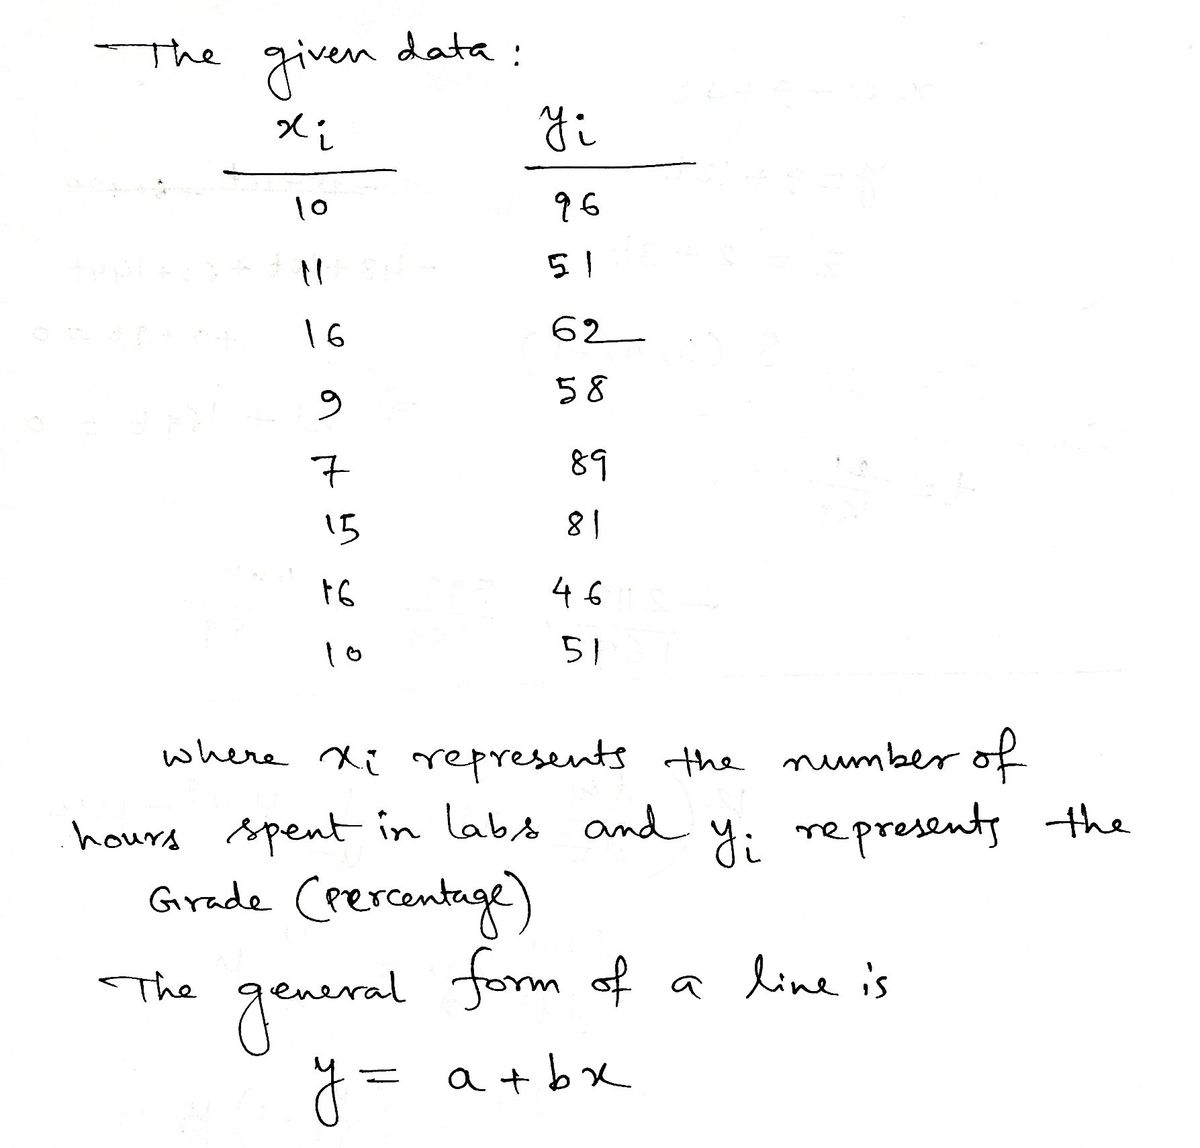 The given data:
xi yi
10 96
11 51
16 62
9 58
7 89
15 81
16 46
10 51
where xi represents the number of
hours spent in labs and yi represents the
Grade (percentage)
The general form of a line is
y = a + bx